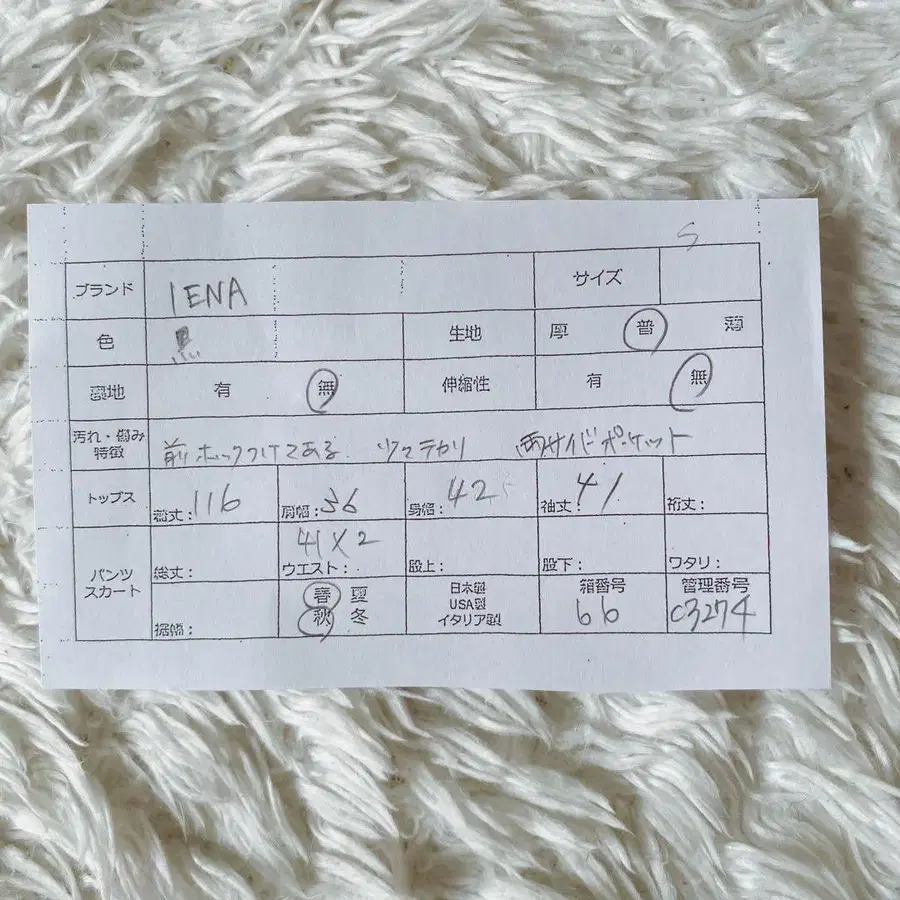 S
ブランド IENA サイズ
色 黒 生地 厚 普 薄
裏地 有 無 伸縮性 有 無
汚れ・傷み
特徴 前ホックつけてある ツマテカリ 両サイドポケット
トップス 総丈：116 肩幅：36 身幅：42 袖丈：41 裄丈：
パンツ
スカート 総丈： 41×2 ウエスト： 股上： 股下： ワタリ：
裾幅： 春 夏 秋 冬
日本製
USA製
イタリア製
箱番号 66
管理番号 C3274